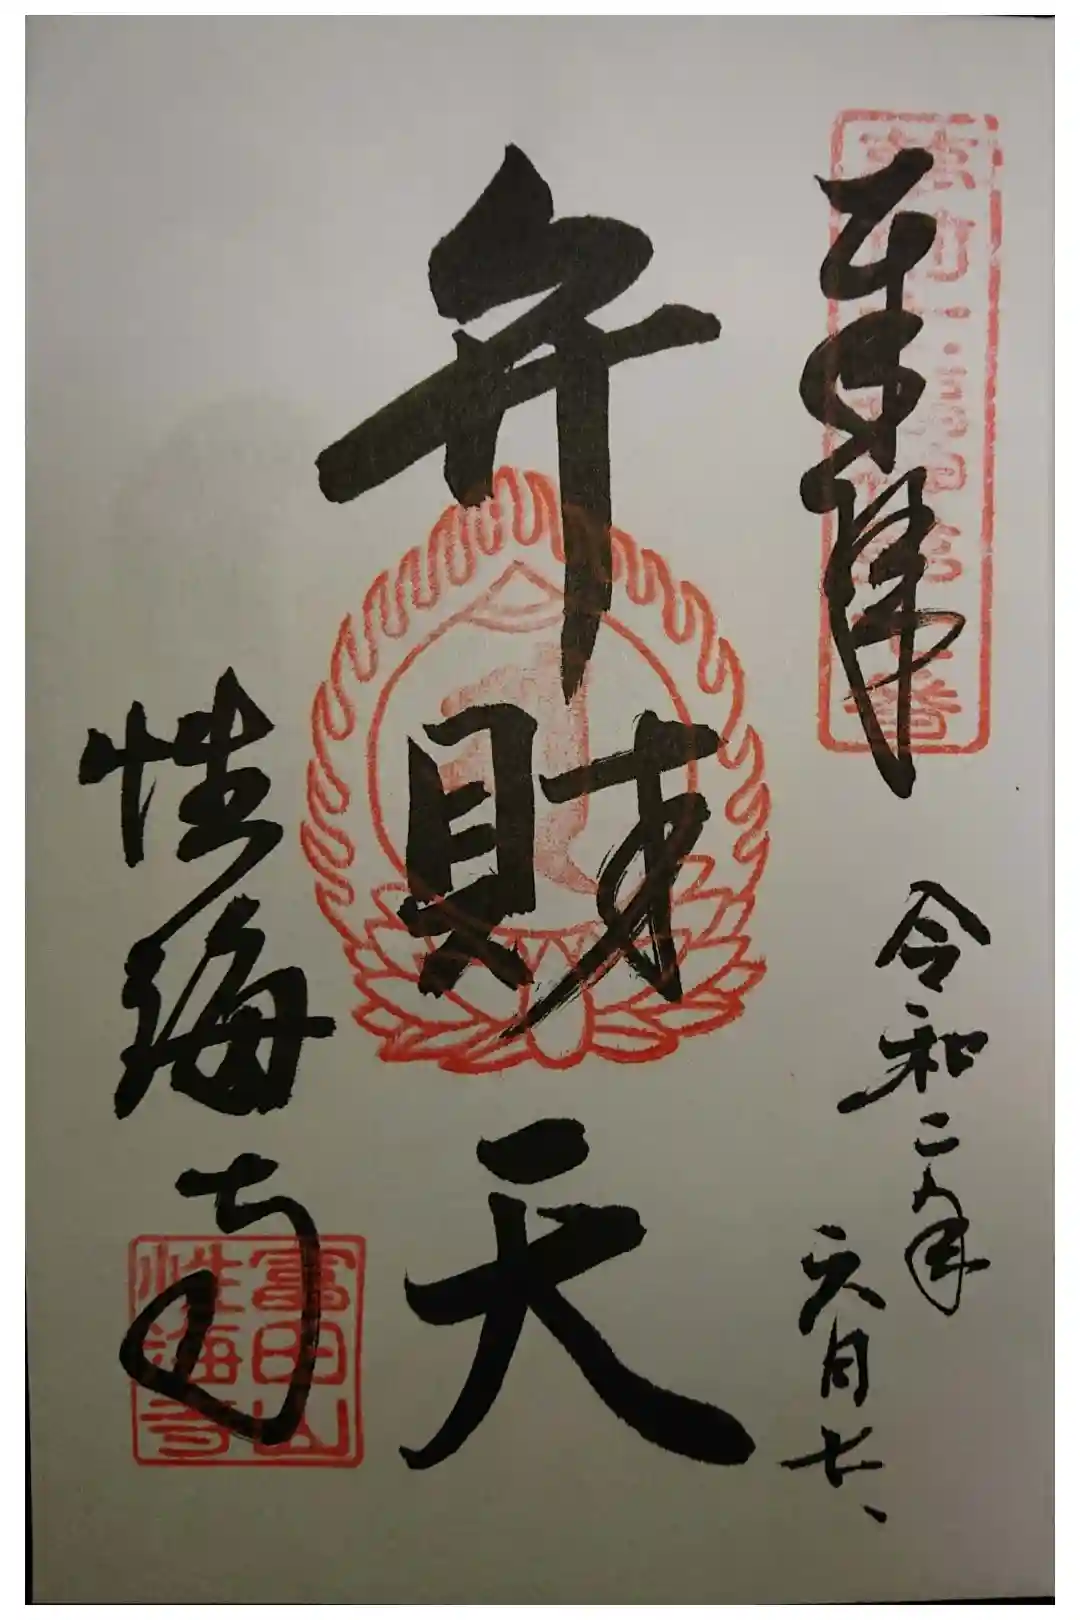 奉拝
令和二年
六月七日
弁財天
性海寺
富田山
性海寺